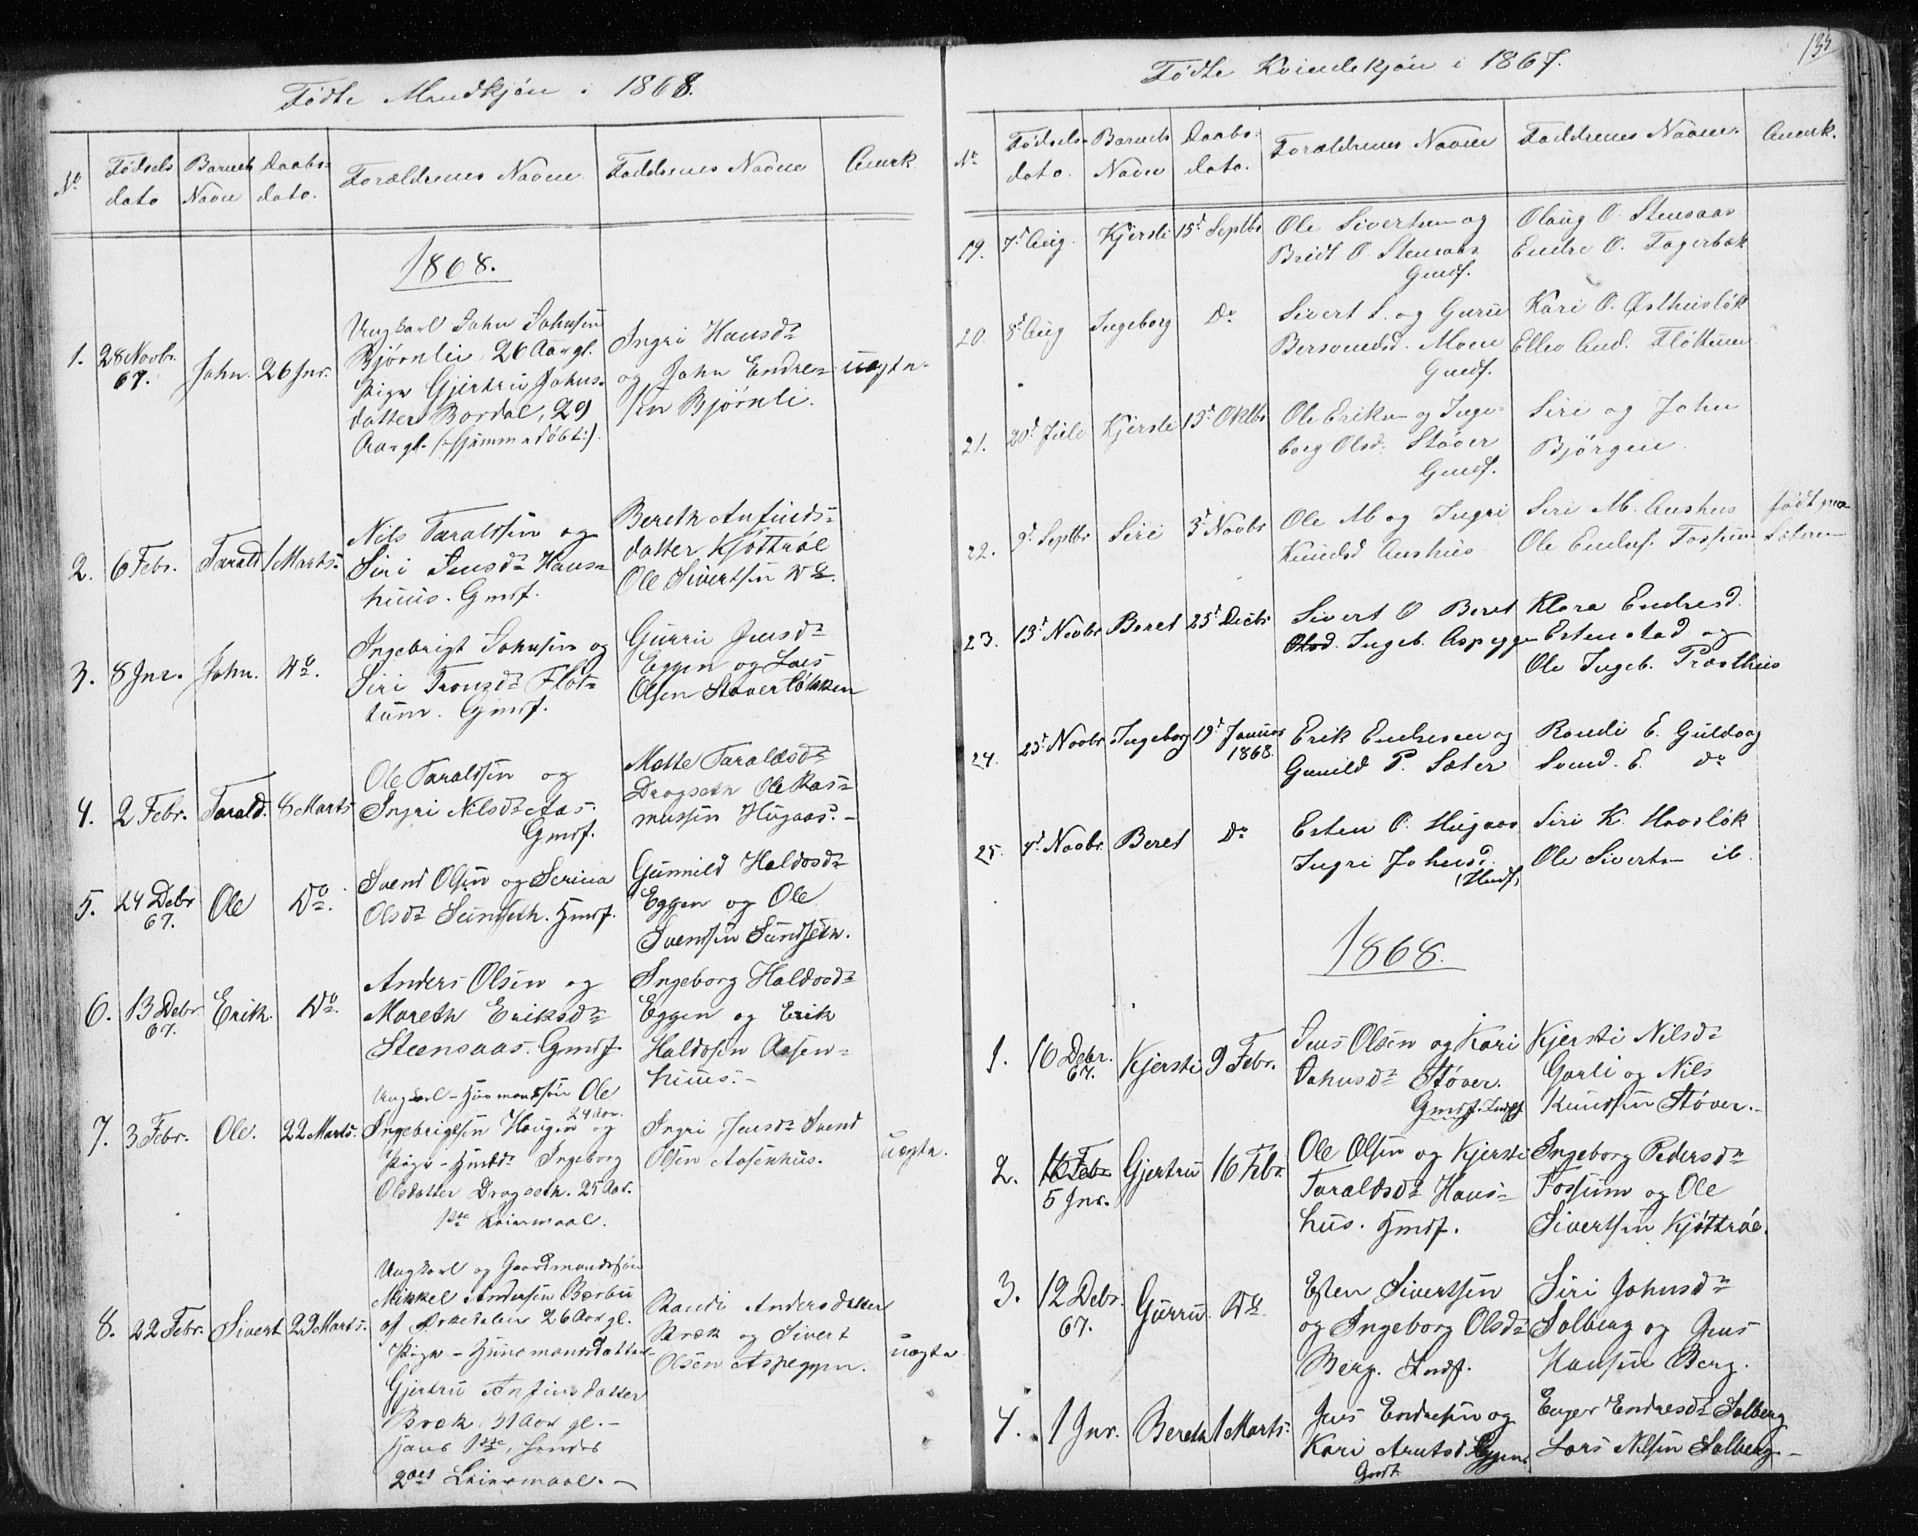 Fødte Mandkjøn i 1868.
No Fødsels dato Barnets Navn Daabs- dato. Forældrenes Navne Faddrenes Navne Anmk.
1868.
1. 28 Novbr. 67. John. 26 Jnr.
Ungkarl John Johnsen
Bjørnli, 26 Aar gl.
Pige Gjertru Johns-
datter Bordal, 29
Aar gl. (:hjemmedøbt:).
Ingri Hansdr
og John Endre-
sen Bjørnli.
uægte.
2. 6 Febr. Tarald 1 Marts.
Nils Taraldsen og
Siri Jensdr Haus-
huus. Gmdf.
Bereth Anfinds-
datter Kjøttrøe
Ole Sivertsen Do.
3. 8 Jnr. John. Do.
Ingebrigt Johnsen og
Siri Tronsdr Fløt-
tum. Gmdf.
Gurru Jensdr
Eggen og Lars
Olsen Støverløkken
4. 2 Febr. Tarald. 8 Marts
Ole Taraldsen og
Ingri Nilsdr Aas.
Gmdf.
Mette Taraldsdr
Dragseth Ole Ras-
mussen Hugaas.-
5. 24 Debr 67. Ole Do.
Svend Olsen og Serina
Olsdr Sundseth. Hmdf.
Gunnild Haldosdr
Eggen og Ole
Svendsen Sundseth.
6. 13 Debr. 67. Erik. Do.
Anders Olsen og
Mareth Eriksdr
Steensaas. Gmdf.
Ingeborg Haldosdr
Eggen og Erik
Haldosen Aasen-
huus.-
7. 3 Febr. Ole. 22 Marts.
Ungkarl - Huusmandssøn Ole
Ingebrigtsen Haugen 24 Aar. og
Pige - Hmdsdr Ingeborg
Olsdatter Dragseth. 25 Aar.
1ste Leiermaal.
Ingri Jensdr Svend
Olsen Aasenhus.
uægte.
8. 22 Febr. Sivert 22 Marts.
Ungkarl og Gaardmandssøn
Mikkel Andersen Bærbu
af Ørkedalen 26 Aar gl.
Pige - Huusmandsdatter
Gjertru Anfinsdatter
Bræk, 31 Aar gl.-
hans 1ste, hendes
2det Leiermaal.-
Randi Andersdatter
Bræk og Sivert
Olsen Aspeggen.
uægte
135
Fødte Kvindekjøn i 1867.
No Fødsels- dato. Barnets Navn Daabs- dato. Forældrenes Navne Faddrenes Navne. Anmrk.
19. 7d Aug. Kjersti 15d Septbr
Ole Sivertsen og
Bredt O. Stensaas
Gmdf.
Olaug O. Stensaas
Endre O. Fagerbæk
20. 8d Aug Ingeborg Do
Sivert S. og Guru
Bersvendsd. Moen
Gmdf.
Kari O. Østhusløk
Ellev And. Fløttum
21. 20d Juli Kjersti 13d Oktbr
Ole Eriksen og Inge-
borg Olsd. Støver
Gmdf.
Siri og John
Bjørgen.
22. 9d Septbr Siri 3d Novbr
Ole M og Ingri
Knudsd Aushus
Siri M. Aushus
Ole Endres. Fossum
født paa
Sæteren
23. 13d Novbr Beret 25d Decbr
Sivert O Beret
Olsd. Ingeb. Aspeggen
Klara Endresd.
Estenstad og
Ole Ingeb. Præsthus
24. 25d Novbr Ingeborg 19d Januar 1868.
Erik Endresen og
Gunild P. Sæter
Randi E. Guldvog
Svend. E. do
25. 4d Novbr. Beret Do
Esten O. Hugaas
Ingri Johnsd.
(Hmdf)
Siri K. Hovsløk
Ole Siverts- ib.
1868.
1. 16 Debr. 67. Kjersti 9 Febr.
Jens Olsen og Kari
Johnsdr Støver.
Gmdf.
Kjersti Nilsdr
Garli og Nils
Knudsen Støver.-
2. 16 Feb- 5 Jnr. Gjertru 16 Febr.
Ole Olsen og Kjersti
Taraldsdr Haus-
hus. Hmdf.
Ingeborg Pedersdr
Fossum og Ole
Sivertsen Kjøttrøe.
3. 12 Debr. 67. Gurru Do
Esten Sivertsen
og Ingeborg Olsdr
Berg. Indf.
Siri Johnsdr
Solberg og Jens
Hansen Berg.
4. 1 Jnr. Bereth 1 Marts.
Jens Endresen og
Kari Arntsd Eggen.
Gmdf.
Enger Endresdr Solberg
Lars Nilsen Solberg-